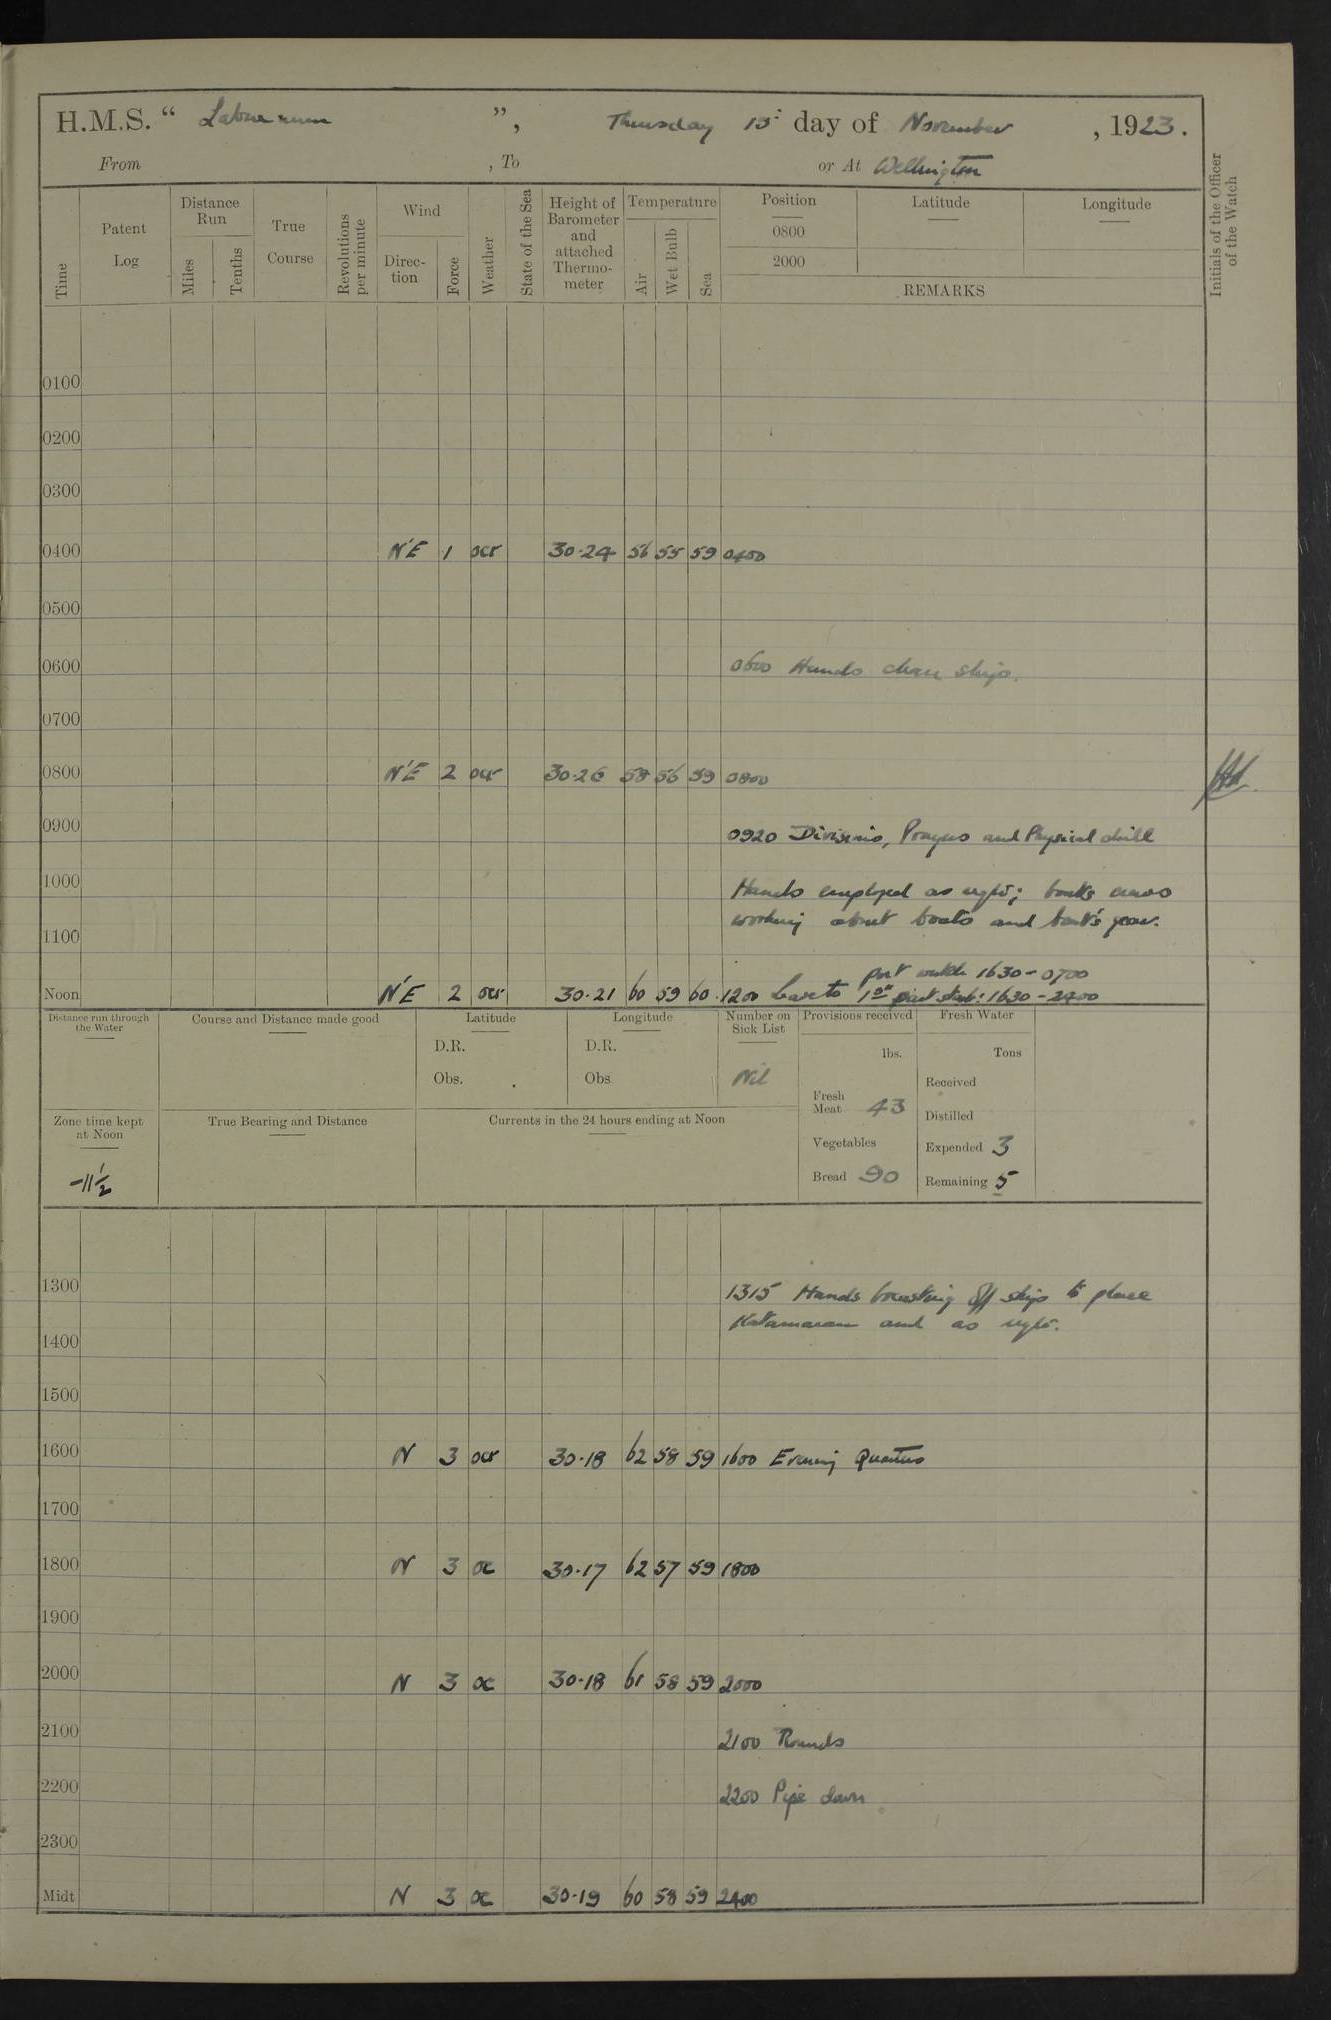 H.M.S. " Laburnum ", Thursday 15th day of November, 1923.
From , To or At Wellington
Time
Patent Log
Distance Run
Miles
Tenths
True Course
Revolutions per minute
Wind
Direc-tion
Force
Weather
State of the Sea
Height of Barometer and attached Thermo-meter
Temperature
Air
Wet Bulb
Sea
Position
0800
2000
Latitude
Longitude
REMARKS
Initials of the Officer of the Watch
0100
0200
0300
0400 N'E 1 ocr 30·24 56 55 59 0400
0500
0600 0600 Hands clean ship.
0700
0800 N'E 2 ocr 30·26 58 56 59 0800
0900 0920 Divisions, Prayers and Physical drill
1000 Hands employed as reqte; boat's crews
working about boats and boat's gear.
1100
port watch 1630 - 0700
Noon N'E 2 ocr 30·21 60 59 60 1200 Leave to 1st part starb: 1630 - 2400
Distance run through the Water
Course and Distance made good
Latitude
D.R.
Obs.
Longitude
D.R.
Obs
Number on Sick List
Nil
Provisions received
lbs.
Fresh Meat 43
Vegetables
Bread 90
Fresh Water
Tons
Received
Distilled
Expended 3
Remaining 5
Zone time kept at Noon
-11 1/2
True Bearing and Distance
Currents in the 24 hours ending at Noon
1300 1315 Hands breasting off ship to place
Katamaran and as reqte.
1400
1500
1600 N 3 ocr 30·18 62 58 59 1600 Evening Quarters
1700
1800 N 3 oc 30·17 62 57 59 1800
1900
2000 N 3 oc 30·18 61 58 59 2000
2100 2100 Rounds
2200 2200 Pipe down
2300
Midt N 3 oc 30·19 60 58 59 2400